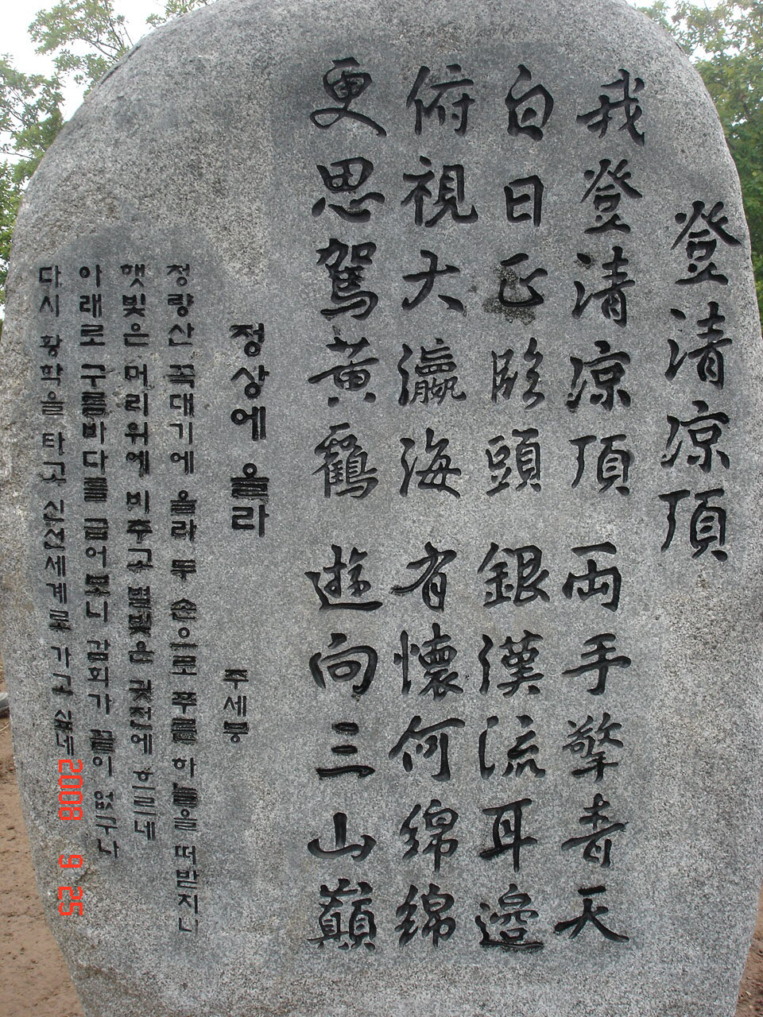 登清凉頂
我登清凉頂 両手擎青天
白日正臨頭 銀漢流耳邊
俯視大瀛海 有懷何綿綿
更思駕黃鶴 遊向三山巓
정상에 올라
주세붕
청량산 꼭대기에 올라 두 손으로 푸른 하늘을 떠받치니
햇빛은 머리위에 비추고 별빛은 귓전에 흐르네
아래로 구름바다를 굽어보니 감회가 끝이 없구나
다시 황학을 타고 신선세계로 가고 싶네
2008 9 25